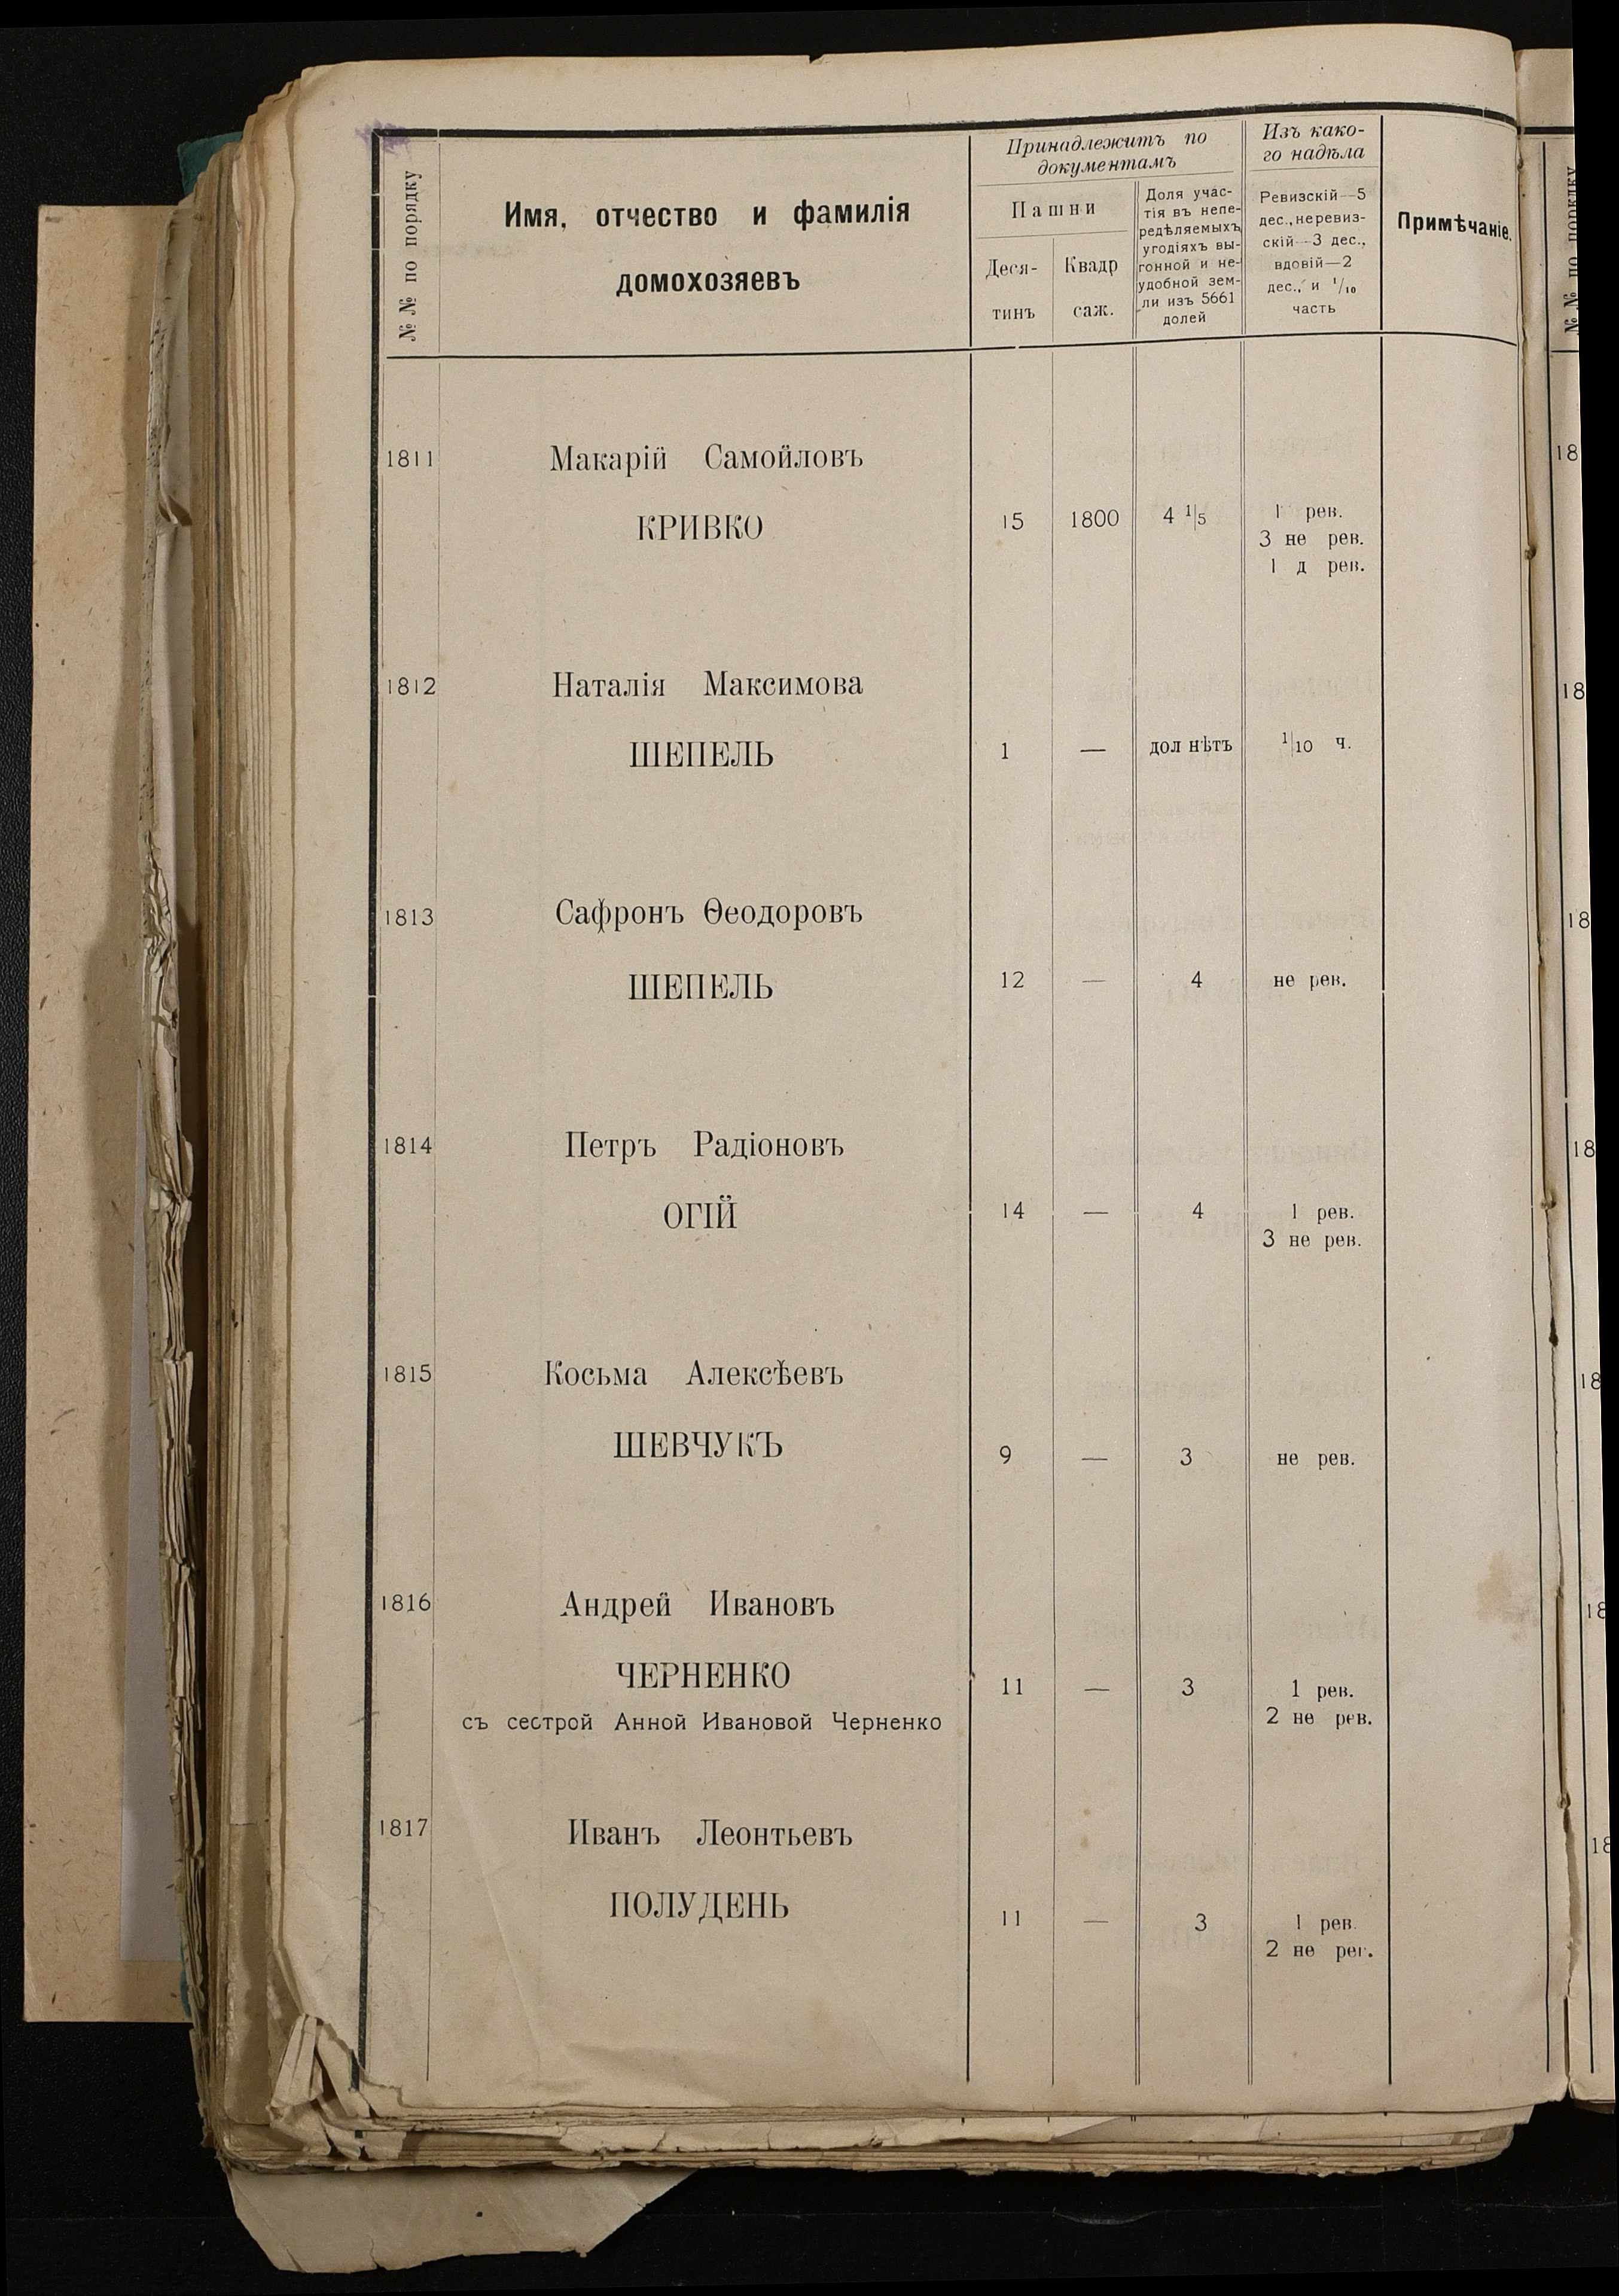 №№ по порядку
Имя, отчество и фамилія
домохозяевъ
Принадлежитъ по
документамъ
Пашни
Деся-
тинъ
Квадр
саж.
Доля учас-
тія въ непе-
редѣляемыхъ
угодіяхъ вы-
гонной и не-
удобной зем-
ли изъ 5661
долей
Изъ како-
го надѣла
Ревизскій—5
дес., неревиз-
скій—3 дес.,
вдовій—2
дес., и 1/10
часть
Примѣчаніе.
№№ по порядку
1811 Макарій Самойловъ
КРИВКО 15 1800 4 1/5 1 рев.
3 не рев.
1 д рев.
1812 Наталія Максимова
ШЕПЕЛЬ 1 — дол нѣтъ 1/10 ч.
1813 Сафронъ Ѳеодоровъ
ШЕПЕЛЬ 12 — 4 не рев.
1814 Петръ Радіоновъ
ОГІЙ 14 — 4 1 рев.
3 не рев.
1815 Косьма Алексѣевъ
ШЕВЧУКЪ 9 — 3 не рев.
1816 Андрей Ивановъ
ЧЕРНЕНКО 11 — 3 1 рев.
съ сестрой Анной Ивановой Черненко 2 не рев.
1817 Иванъ Леонтьевъ
ПОЛУДЕНЬ 11 — 3 1 рев.
2 не рев.
18
18
18
18
18
18
18